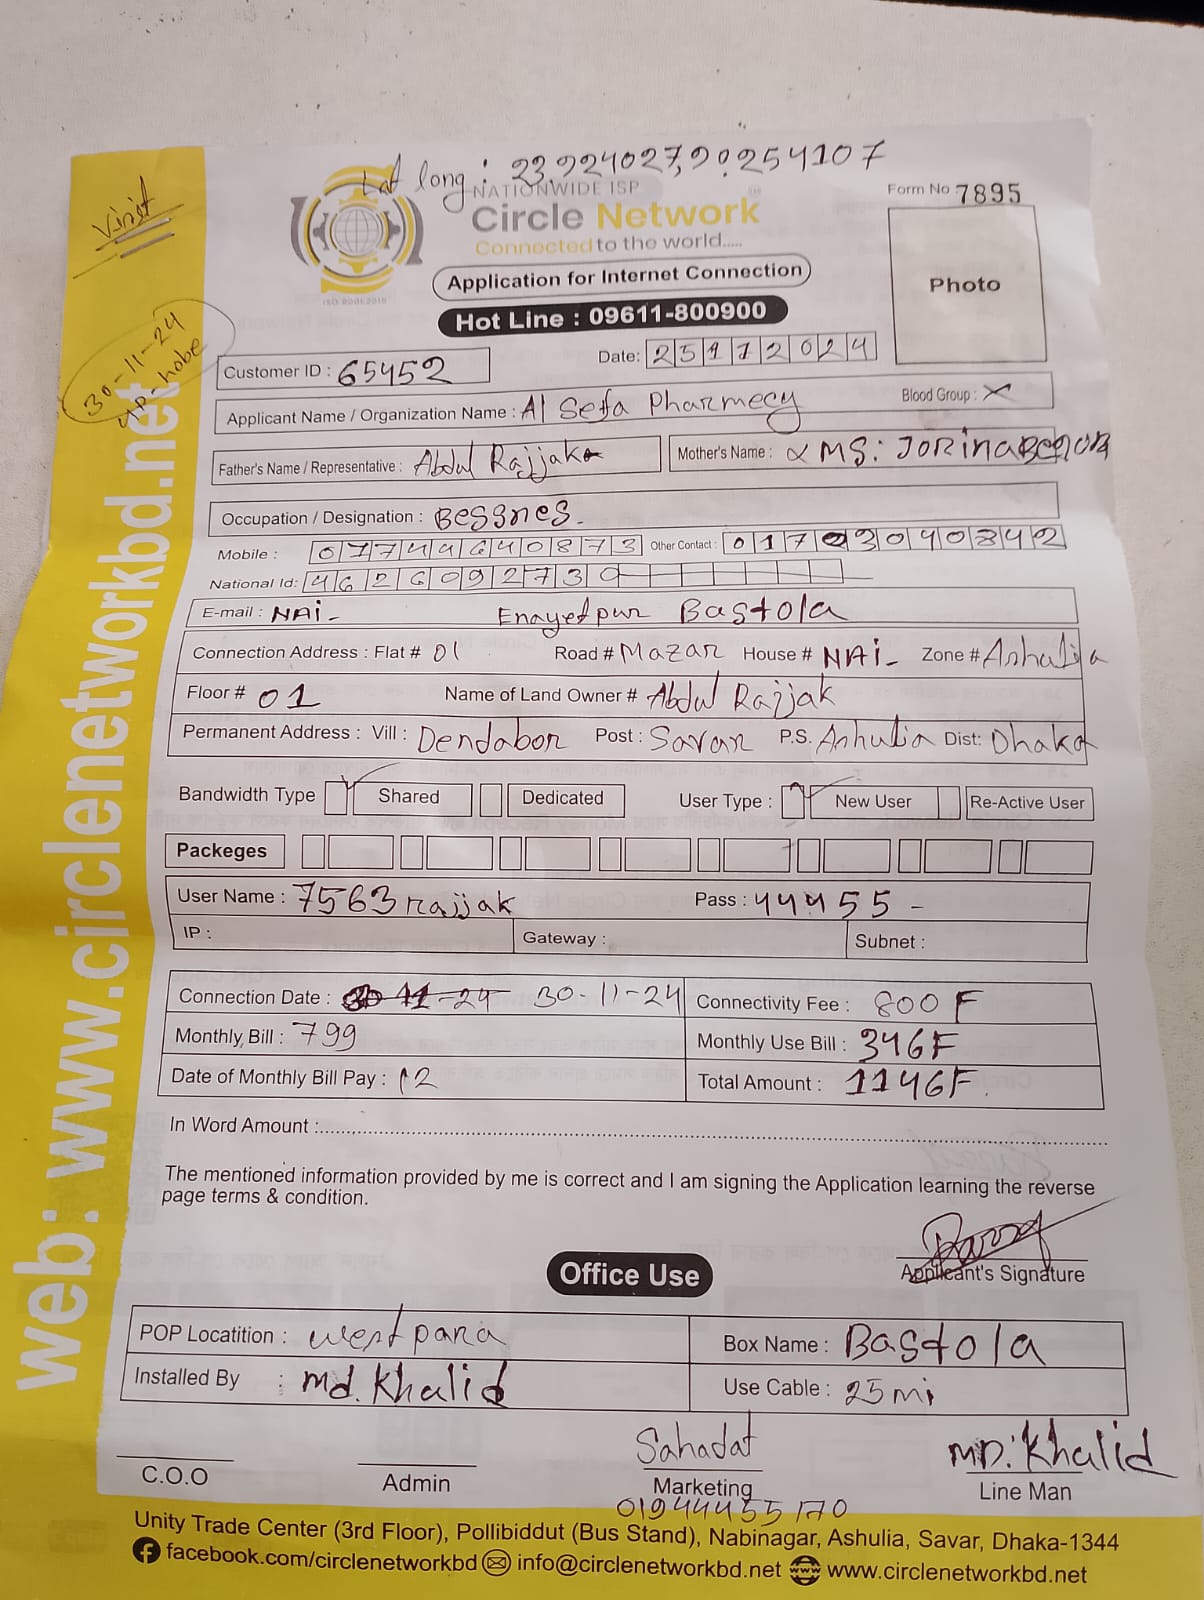 Lat long : 23.924027, 90.254107
NATIONWIDE ISP
Form No 7895
Circle Network
Connected to the world.....
Photo
Virist
ISO 9001:2015
Application for Internet Connection
Hot Line : 09611-800900
30-11-24
up-hobe
Customer ID : 65452
Date: 25112024
Applicant Name / Organization Name : Al Sefa Pharmecy Blood Group : ×
Father's Name / Representative : Abdul Rajjak Mother's Name : MS: JORINA BEGUM
Occupation / Designation : Bessnes-
Mobile : 07749640873 Other Contact : 01703090842
National Id: 4626092730
E-mail : NAi- Enayetpur Bastola
Connection Address : Flat # 01 Road # Mazar House # NAi- Zone # Ashulia
Floor # 01 Name of Land Owner # Abdul Rajjak
Permanent Address : Vill : Dendabor Post : Savar P.S. Ashulia Dist: Dhaka
Bandwidth Type Shared Dedicated User Type : New User Re-Active User
Packeges
User Name : 7563rajjak Pass : 44455 -
IP : Gateway : Subnet :
Connection Date : 30-11-24 30-11-24 Connectivity Fee : 800F
Monthly Bill : 799 Monthly Use Bill : 346F
Date of Monthly Bill Pay : 12 Total Amount : 1146F
In Word Amount :
The mentioned information provided by me is correct and I am signing the Application learning the reverse
page terms & condition.
Applicant's Signature
Office Use
POP Locatition : westpara Box Name : Bastola
Installed By : md. Khalid Use Cable : 25mi
Sahadat MD. Khalid
C.O.O Admin Marketing Line Man
01944455170
Unity Trade Center (3rd Floor), Pollibiddut (Bus Stand), Nabinagar, Ashulia, Savar, Dhaka-1344
facebook.com/circlenetworkbd info@circlenetworkbd.net www.circlenetworkbd.net
web: www.circlenetworkbd.net